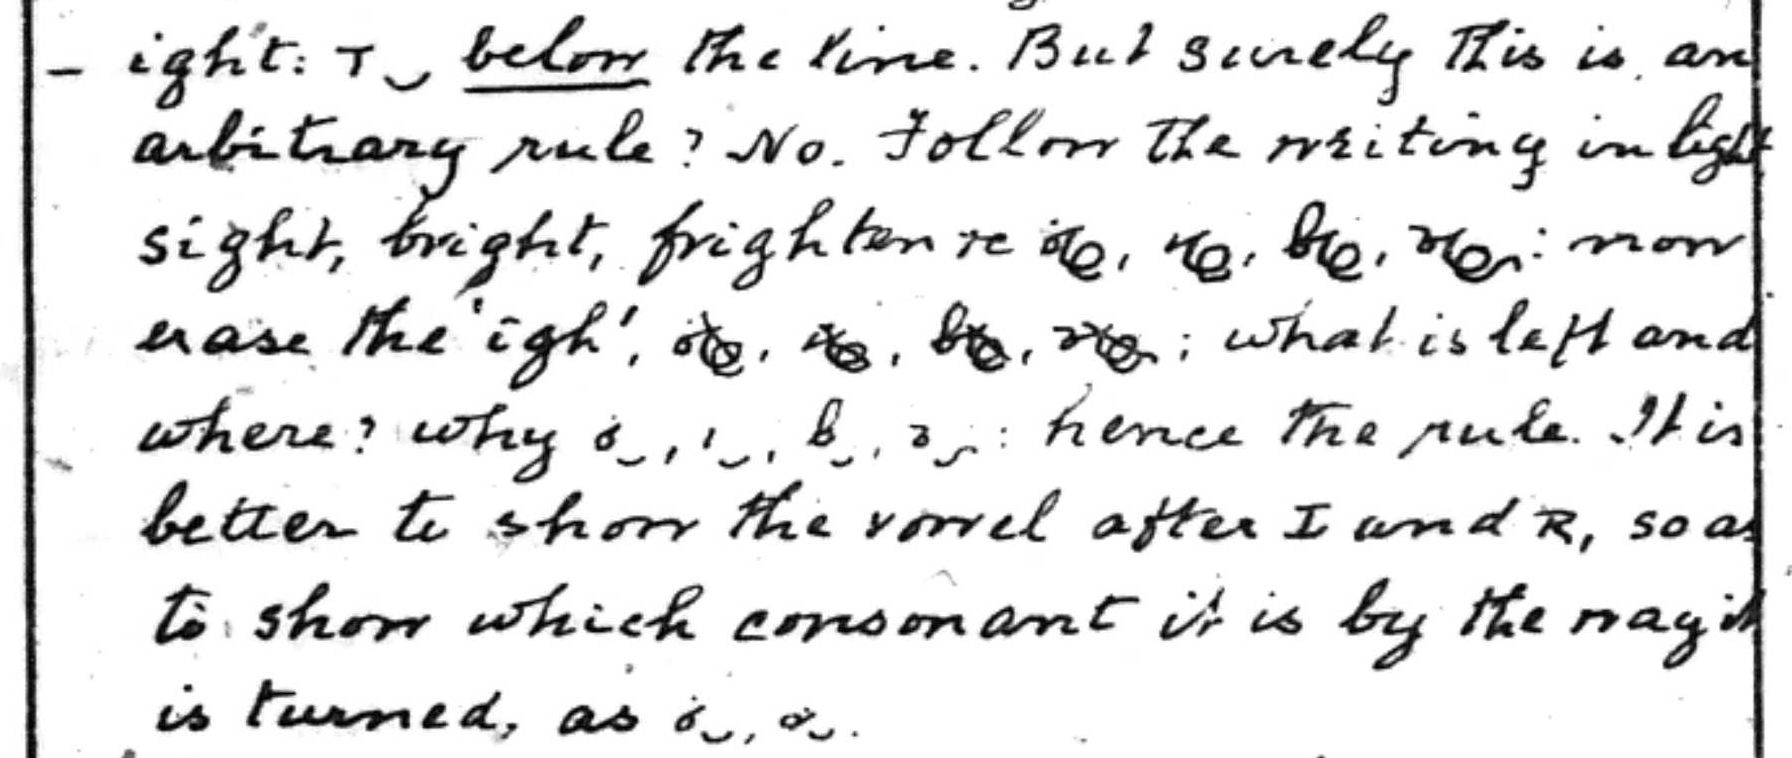 - ight: T below the line. But surely this is an
arbitrary rule? No. Follow the writing in light
sight, bright, frighten ie : now
erase the 'igh', ; what is left and
where? why : hence the rule. It is
better to show the vowel after I and R, so as
to show which consonant it is by the way it
is turned, as